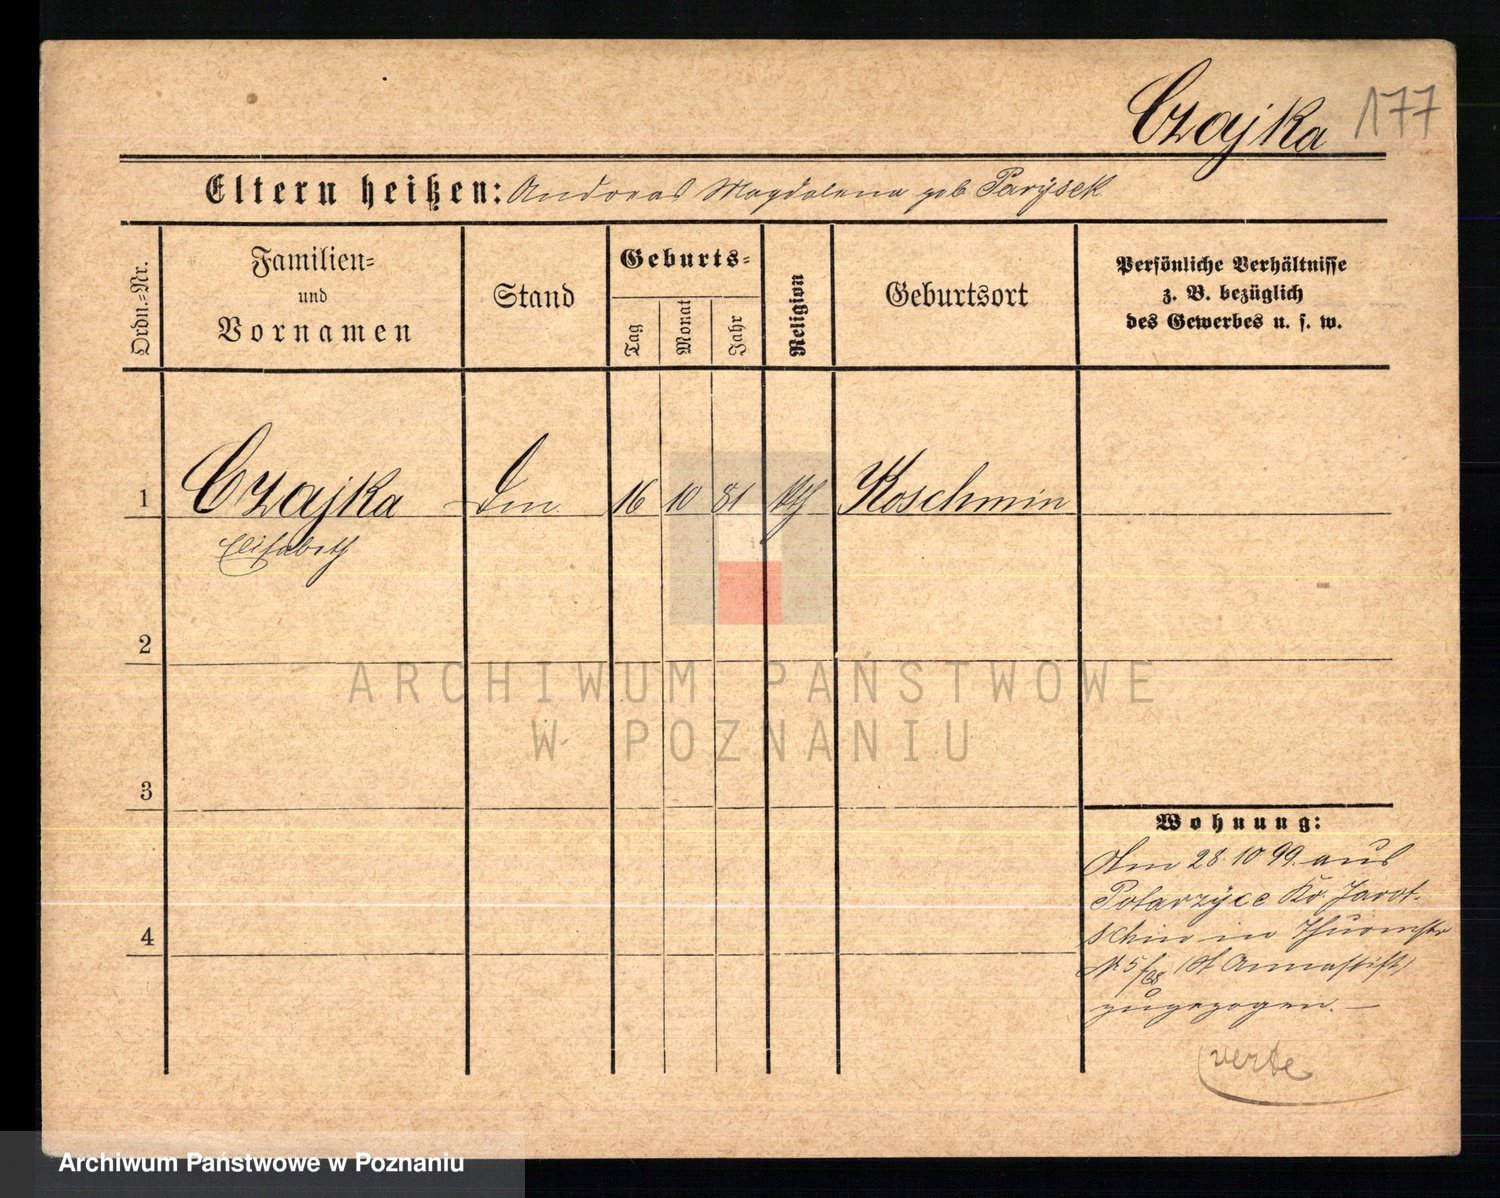 Czajka 177
Eltern heißen: Andreas Magdalena geb Parysek
Ordn.-Nr.
Familien-
und
Vornamen
Stand
Geburts-
Tag
Monat
Jahr
Religion
Geburtsort
Persönliche Verhältnisse
z. B. bezüglich
des Gewerbes u. s. w.
1 Czajka 16 10 81 kth Koschmin
Elisabeth
2
3
4
Wohnung:
Am 28.10 99. aus
Potarzyce Kr. Jarot-
schin in Thurmstr
Nr. 5/ (St Annastift)
zugezogen. —
verte
ARCHIWUM PAŃSTWOWE
W POZNANIU
Archiwum Państwowe w Poznaniu